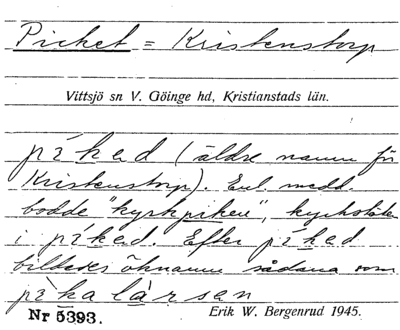 Picket = Kristenstorp
Vittsjö sn V. Göinge hd, Kristianstads län.
pì̀ked (äldre namn för
Kristenstorp). Enl. medd.
bodde "kyrkpiken", kyrkstöten
i pì̀ked. Efter pì̀ked
bildades öknamn sådana som
pì̀ka làrsen
Nr 5393. Erik W. Bergenrud 1945.